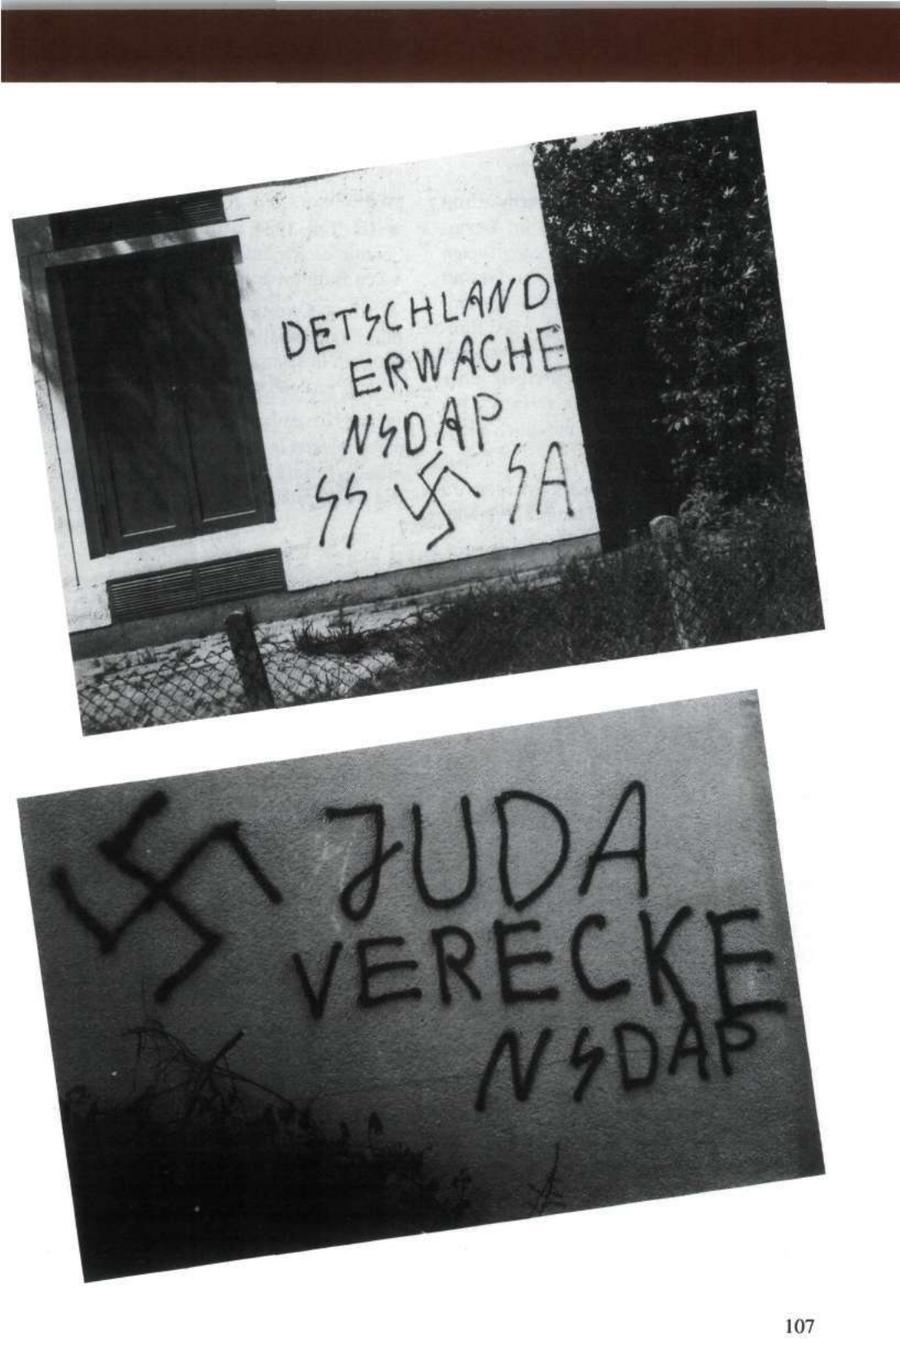 DETSCHLAND
ERWACHE
NSDAP
SS 卐 SA
卐 JUDA
VERECKE
NSDAP
107